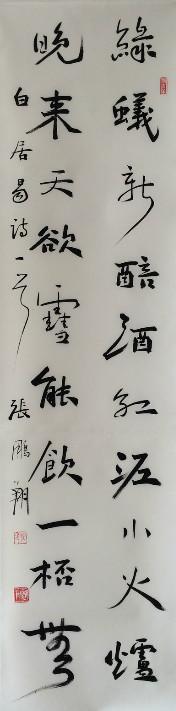 綠蟻新醅酒紅泥小火爐
晚来天欲雪能飲一桮無
白居易詩一首 張鵬翔